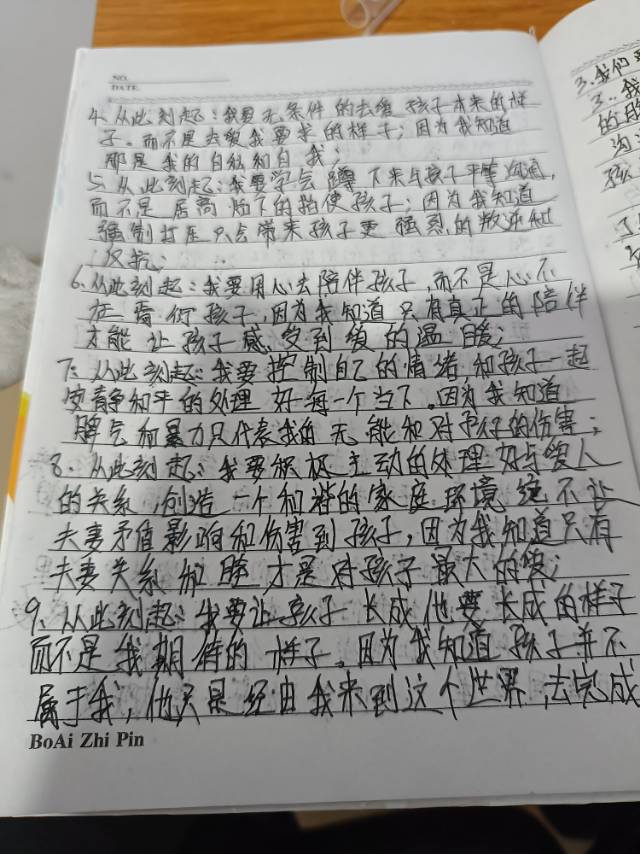 NO.
DATE.
4. 从此刻起：我要无条件的去爱孩子本来的样
子。而不是去爱我要求的样子；因为我知道
那是我的自私和自我；
5. 从此刻起：我要学会蹲下来与孩子平等沟通，
而不是居高临下的指使孩子；因为我知道
强制打压只会带来孩子更强烈的叛逆和
反抗；
6. 从此刻起：我要用心去陪伴孩子，而不是心不
在焉何孩子，因为我知道只有真正的陪伴
才能让孩子感受到爱的温暖；
7. 从此刻起：我要控制自己的情绪和孩子一起
安静和平的处理好每一个当下。因为我知道
脾气和暴力只代表我的无能和对孩子的伤害；
8. 从此刻起：我要积极主动的处理好与爱人
的关系，创造一个和谐的家庭环境绝不让
夫妻矛盾影响和伤害到孩子，因为我知道只有
夫妻关系和睦才是对孩子最大的爱；
9. 从此刻起：我要让孩子长成他要长成的样子
而不是我期待的样子。因为我知道孩子并不
属于我，他只是经由我来到这个世界，去完成
BoAi Zhi Pin
3. 我们
3. 我
的
沟
孩